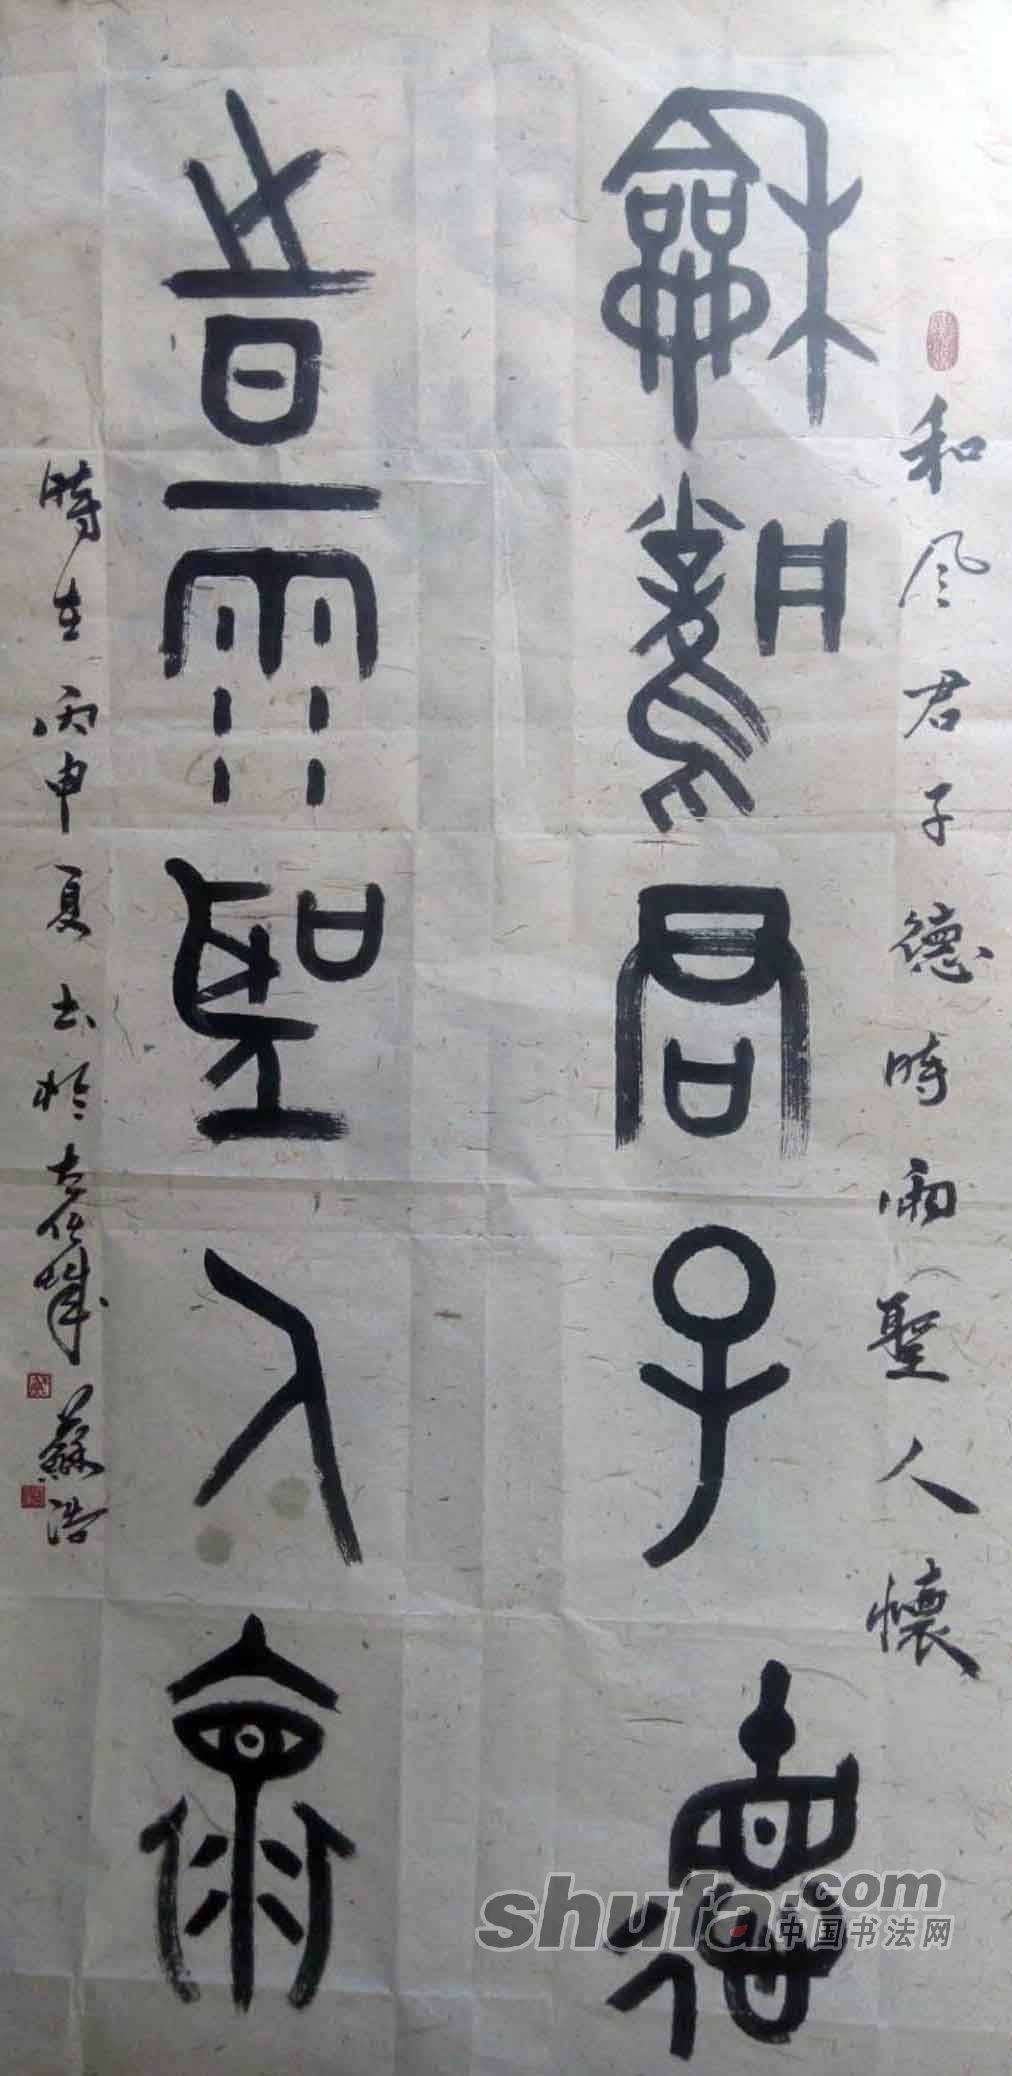 和风君子德時雨聖人懷
龢風君子德
旹雨聖人褱
時在丙申夏书於古任城 蘇浩
shufa.com
中国书法网